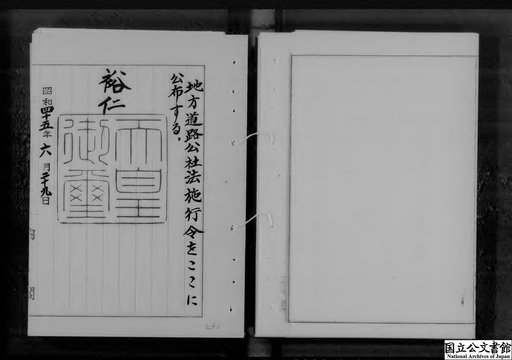 地方道路公社法施行令をここに
公布する。
裕仁
天皇
御璽
昭和四十五年六月二十九日
内閣
国立公文書館
National Archives of Japan